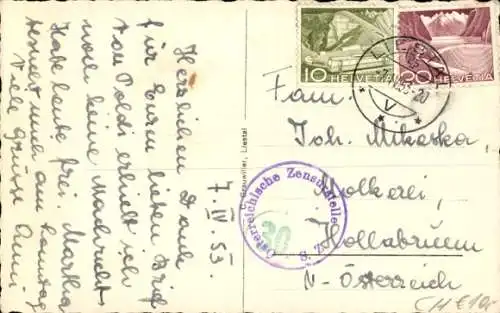 7. IV. 53.
Herzlichen Dank
für Euren lieben Brief
von Poldi erhielt ich
noch keine Nachricht
Habe heute frei,
und am Sonntag
Viele Grüsse
10 HELVETIA
20 HELVETIA
LIESTAL
V
Fam.
Joh. Mikeska
Molkerei,
Hollabrunn
N-Österreich
Österreichische Zensurstelle
30
S. Z.
Liestal
CH € 10,-